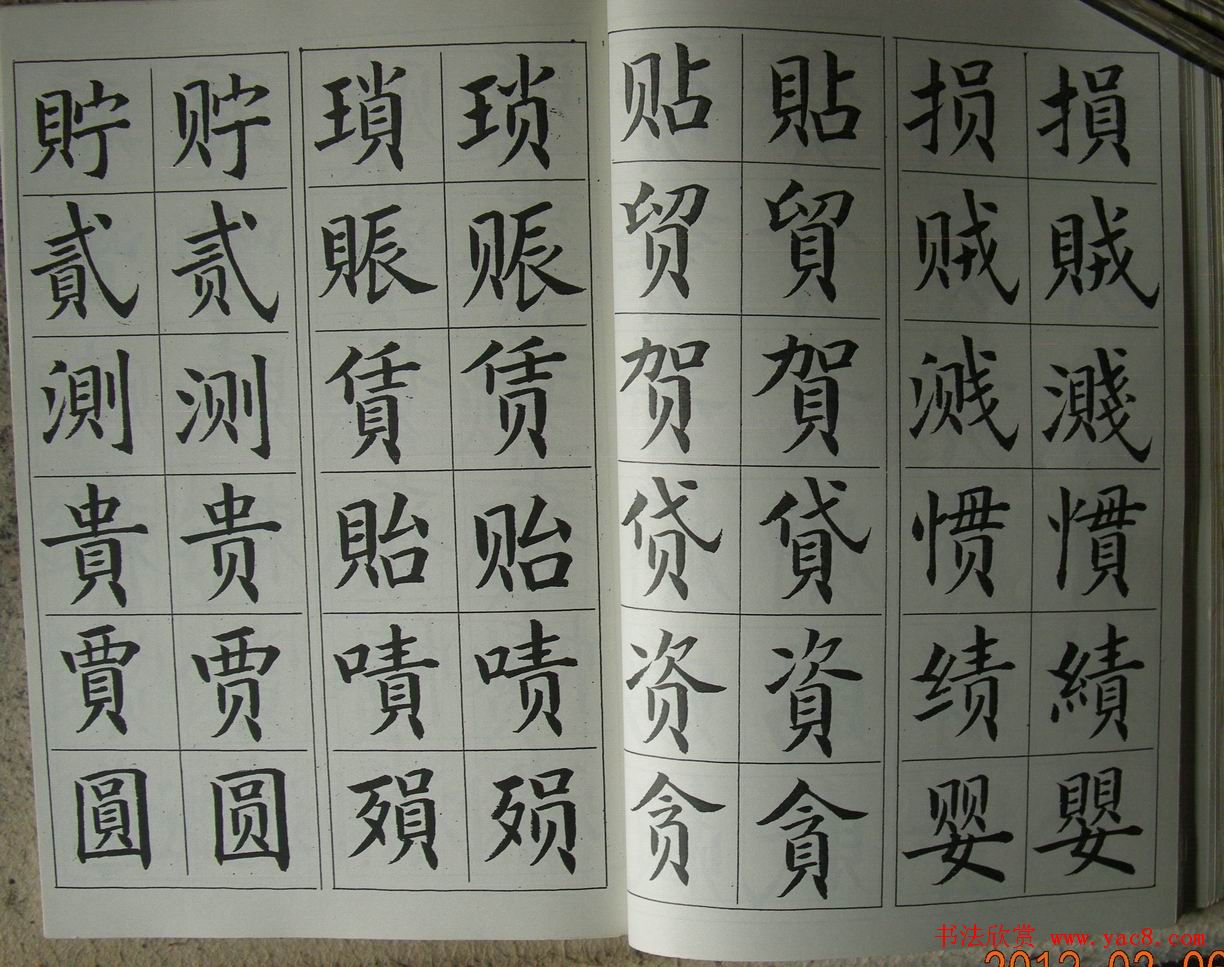 貯 贮 瑣 琐 贴 貼 损 損
貳 贰 賑 赈 贸 貿 贼 賊
測 测 賃 赁 贺 賀 溅 濺
貴 贵 貽 贻 贷 貸 惯 慣
賈 贾 嘖 啧 资 資 绩 績
圓 圆 殞 殒 贪 貪 婴 嬰
书法欣赏 www.yac8.com